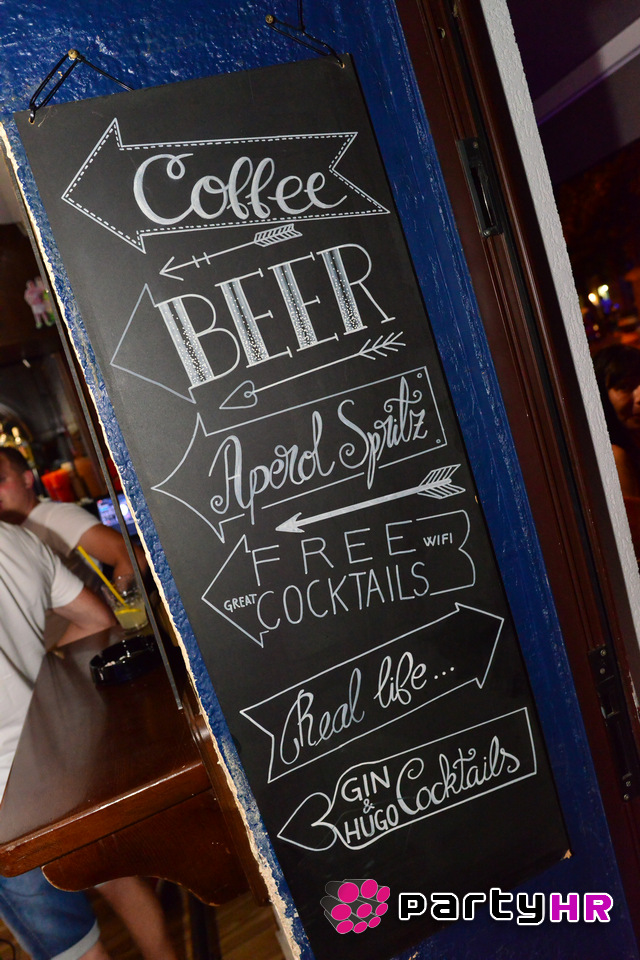 Coffee
BEER
Aperol Spritz
FREE WIFI
GREAT COCKTAILS
Real life...
GIN
& HUGO Cocktails
partyHR